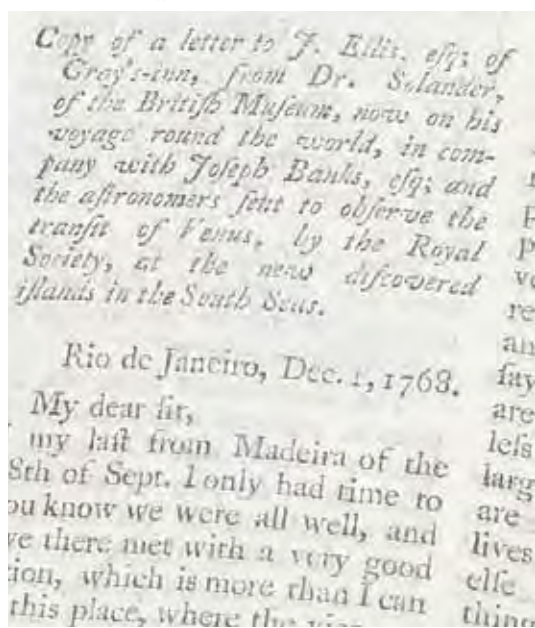 Copy of a letter to J. Ellis, eſq; of
Gray's-inn, from Dr. Solander,
of the Britiſh Muſeum, now on his
voyage round the world, in com-
pany with Joſeph Banks, eſq; and
the aſtronomers ſent to obſerve the
tranſit of Venus, by the Royal
Society, at the new diſcovered
iſlands in the South Seas.
Rio de Janeiro, Dec. 1, 1768.
My dear ſir,
my laſt from Madeira of the
8th of Sept. I only had time to
ou know we were all well, and
ve there met with a very good
tion, which is more than I can
this place, where the
ve
re
an
ſay
are
leſs
larg
are
lives
elſe
thing